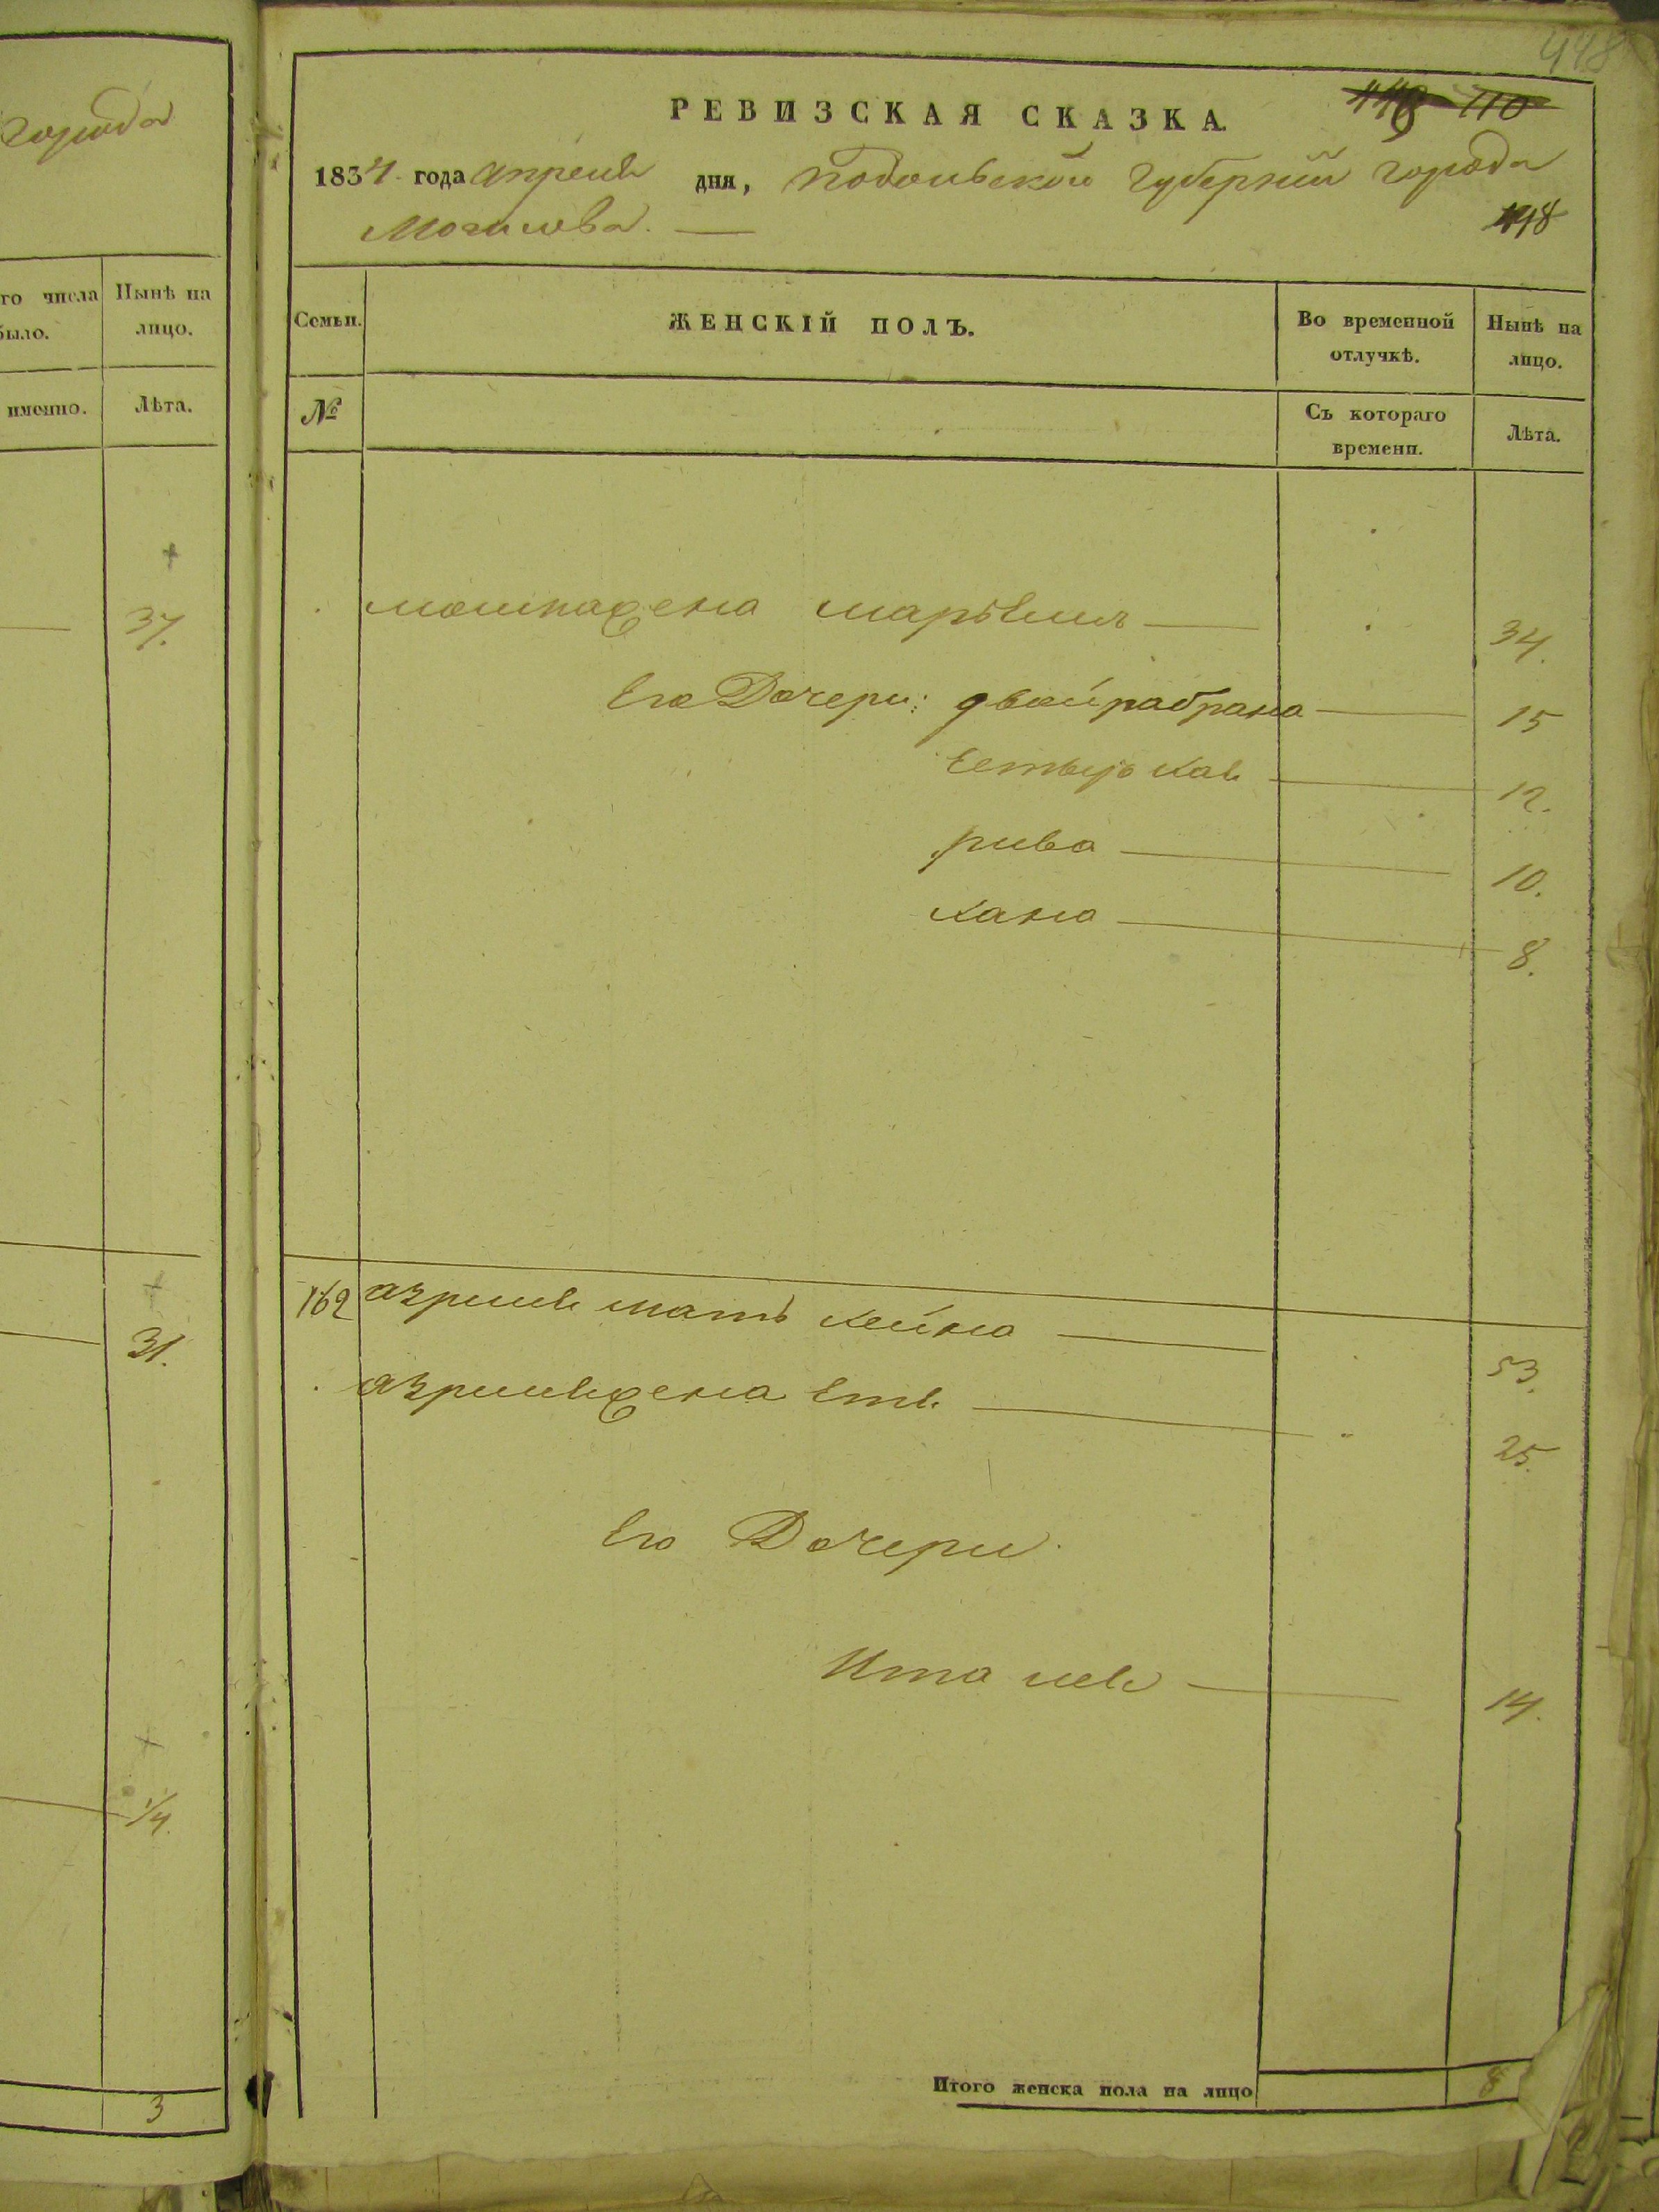 города
го числа было.
Нынѣ на лицо.
именно.
Лѣта.
37.
31.
1/4.
3
448
110
РЕВИЗСКАЯ СКАЗКА.
1834 года апреля дня, Подольской Губерніи города
Могилева.
448
Семьи.
ЖЕНСКІЙ ПОЛЪ.
Во временной отлучкѣ.
Нынѣ на лицо.
№
Съ котораго времени.
Лѣта.
мошка жена маріемя 34.
Его Дочери: двойра брана 15
Естыръ хая 12.
рива 10.
хана 8.
162 азриля мать хейна 53.
азриля жена Етя 25.
Его Дочери
Ита лея 14.
Итого женска пола на лицо 8